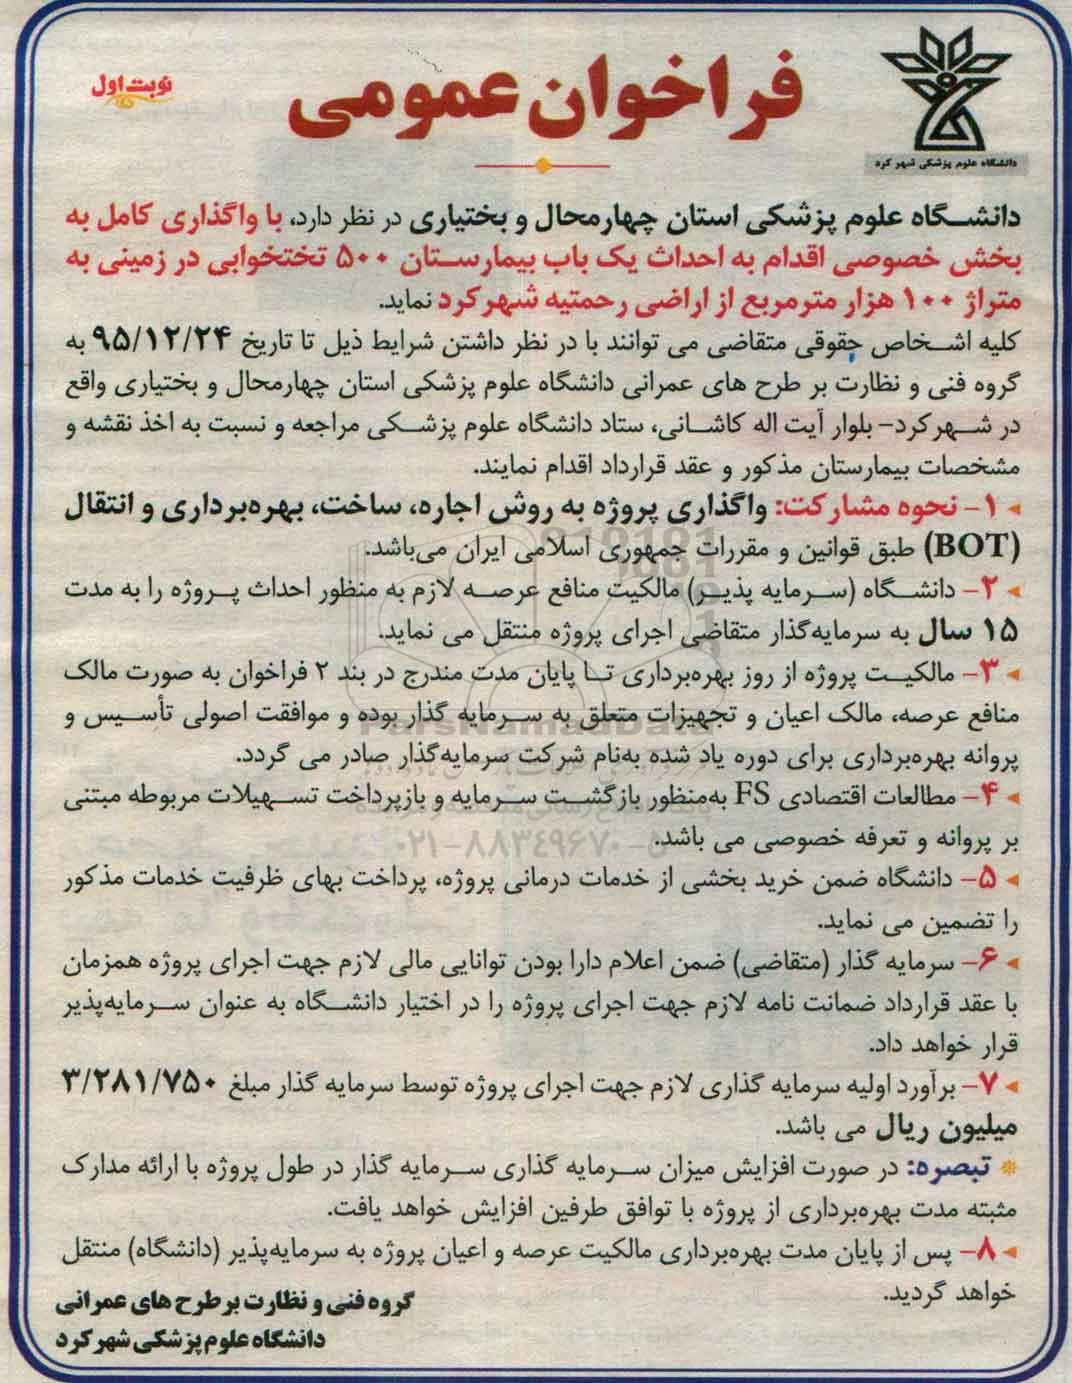 فراخوان عمومی
نوبت اول
دانشگاه علوم پزشکی شهر کرد
دانشگاه علوم پزشکی استان چهارمحال و بختیاری در نظر دارد، با واگذاری کامل به
بخش خصوصی اقدام به احداث یک باب بیمارستان ۵۰۰ تختخوابی در زمینی به
متراژ ۱۰۰ هزار مترمربع از اراضی رحمتیه شهرکرد نماید.
کلیه اشخاص حقوقی متقاضی می توانند با در نظر داشتن شرایط ذیل تا تاریخ ۹۵/۱۲/۲۴ به
گروه فنی و نظارت بر طرح های عمرانی دانشگاه علوم پزشکی استان چهارمحال و بختیاری واقع
در شهرکرد- بلوار آیت اله کاشانی، ستاد دانشگاه علوم پزشکی مراجعه و نسبت به اخذ نقشه و
مشخصات بیمارستان مذکور و عقد قرارداد اقدام نمایند.
۱- نحوه مشارکت: واگذاری پروژه به روش اجاره، ساخت، بهره‌برداری و انتقال
(BOT) طبق قوانین و مقررات جمهوری اسلامی ایران می‌باشد.
۲- دانشگاه (سرمایه پذیر) مالکیت منافع عرصه لازم به منظور احداث پروژه را به مدت
۱۵ سال به سرمایه‌گذار متقاضی اجرای پروژه منتقل می نماید.
۳- مالکیت پروژه از روز بهره‌برداری تا پایان مدت مندرج در بند ۲ فراخوان به صورت مالک
منافع عرصه، مالک اعیان و تجهیزات متعلق به سرمایه گذار بوده و موافقت اصولی تأسیس و
پروانه بهره‌برداری برای دوره یاد شده به‌نام شرکت سرمایه‌گذار صادر می گردد.
۴- مطالعات اقتصادی FS به‌منظور بازگشت سرمایه و بازپرداخت تسهیلات مربوطه مبتنی
بر پروانه و تعرفه خصوصی می باشد.
۵- دانشگاه ضمن خرید بخشی از خدمات درمانی پروژه، پرداخت بهای ظرفیت خدمات مذکور
را تضمین می نماید.
۶- سرمایه گذار (متقاضی) ضمن اعلام دارا بودن توانایی مالی لازم جهت اجرای پروژه همزمان
با عقد قرارداد ضمانت نامه لازم جهت اجرای پروژه را در اختیار دانشگاه به عنوان سرمایه‌پذیر
قرار خواهد داد.
۷- برآورد اولیه سرمایه گذاری لازم جهت اجرای پروژه توسط سرمایه گذار مبلغ ۳/۲۸۱/۷۵۰
میلیون ریال می باشد.
تبصره: در صورت افزایش میزان سرمایه گذاری سرمایه گذار در طول پروژه با ارائه مدارک
مثبته مدت بهره‌برداری از پروژه با توافق طرفین افزایش خواهد یافت.
۸- پس از پایان مدت بهره‌برداری مالکیت عرصه و اعیان پروژه به سرمایه‌پذیر (دانشگاه) منتقل
خواهد گردید.
گروه فنی و نظارت بر طرح های عمرانی
دانشگاه علوم پزشکی شهر کرد
ParsNamadData
۰۲۱-۸۸۳۴۹۶۷۰-۵